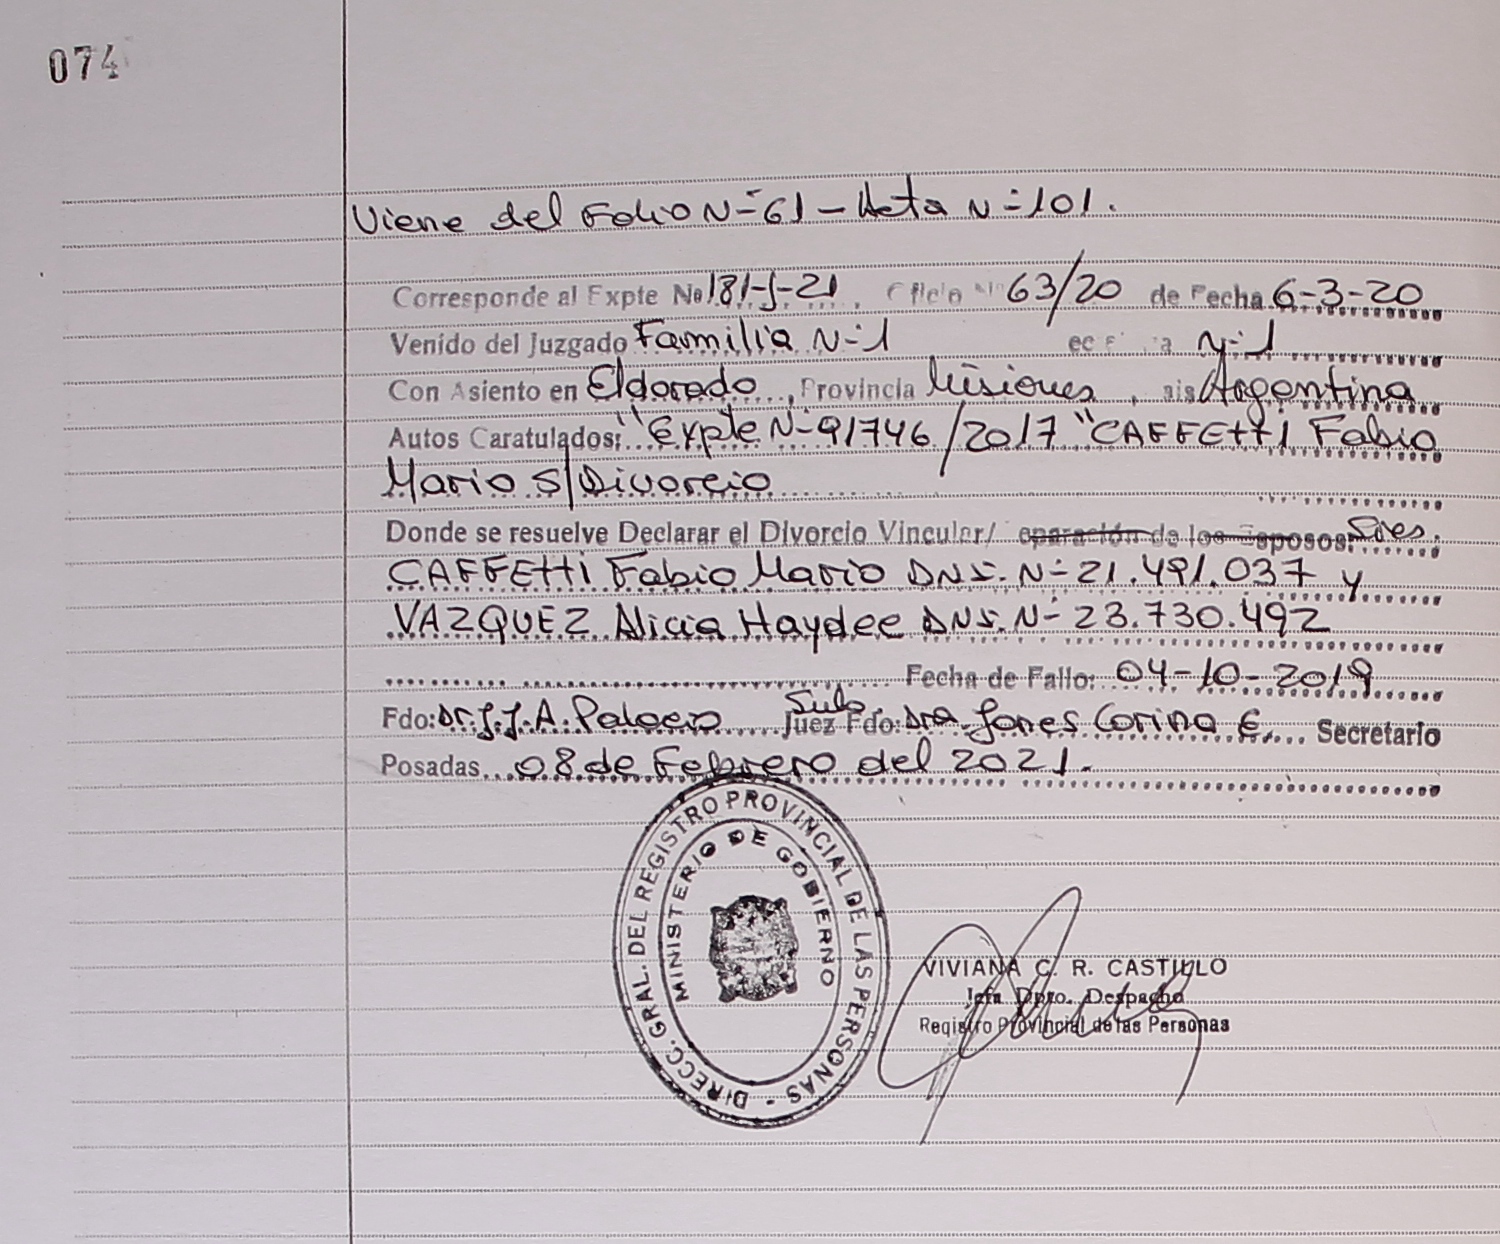 074
Viene del Folio N- 61 - Acta N- 101.
Corresponde al Expte No 181-J-21, Oficio Nº 63/20 de Fecha 6-3-20
Venido del Juzgado Familia N-1 N-1
Con Asiento en Eldorado, Provincia Misiones, ais Argentina
Autos Caratulados: "Expte N- 91746/2017 "CAFFETTI Fabio
Mario S/Divorcio
Donde se resuelve Declarar el Divorcio Vincular/ eparación de los Esposos:
CAFFETTI Fabio Mario DNI. N- 21.491.037 y
VAZQUEZ Alicia Haydee DNI. N- 23.730.492
Fecha de Fallo: 04-10-2019
Fdo: Dr. J.J.A. Palacio Juez Fdo: Dra Jones Corina E. Secretario
Posadas 08 de Febrero del 2021.
DIRECC. GRAL. DEL REGISTRO PROVINCIAL DE LAS PERSONAS -
MINISTERIO DE GOBIERNO
VIVIANA C. R. CASTILLO
Jefa Dpto. Despacho
Registro Provincial de las Personas